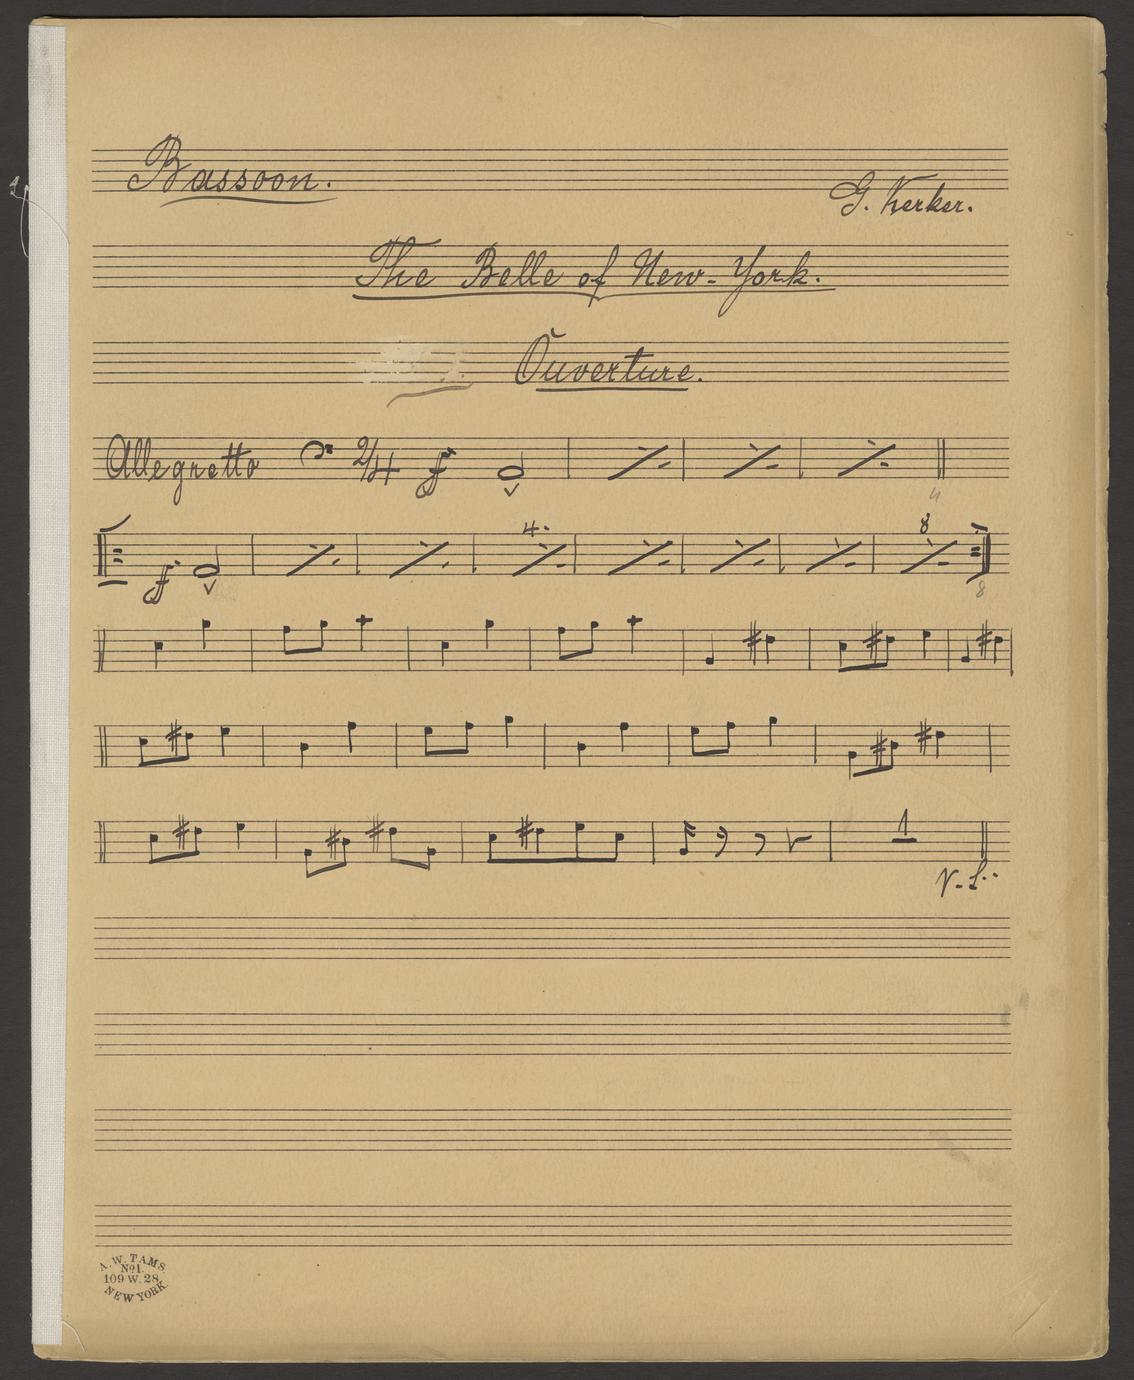 Bassoon.
G. Kerker.
The Belle of New-York.
Ouverture.
Allegretto 2/4 f
4
f 4. 8
8
1
V.S.
A. W. TAMS
No1.
109 W. 28.
NEW YORK